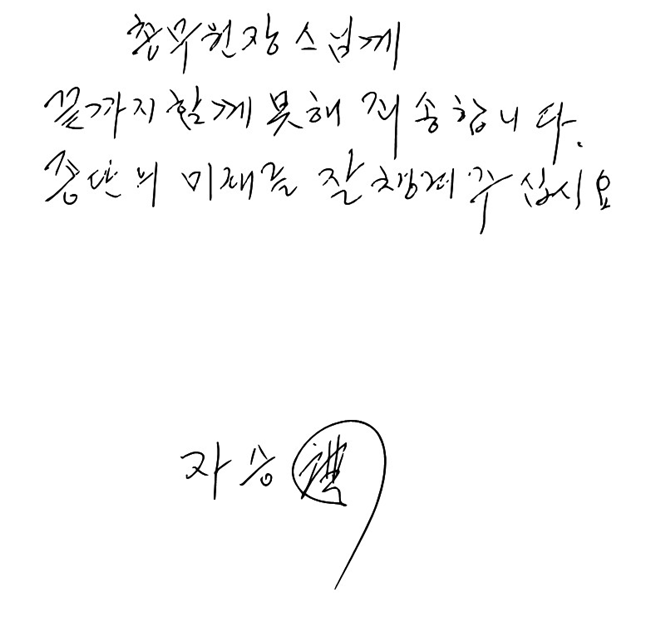 총무원장스님께
끝까지함께 못해 죄송합니다.
종단의 미래를 잘 챙겨 주십시요
자승